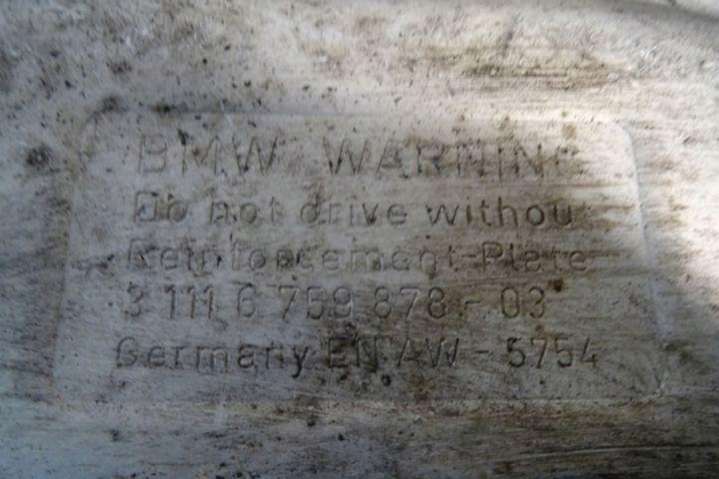 BMW WARNING
Do not drive withou
Reinforcement-Plate
3 111 6 759 878 - 03
Germany EN AW - 5754